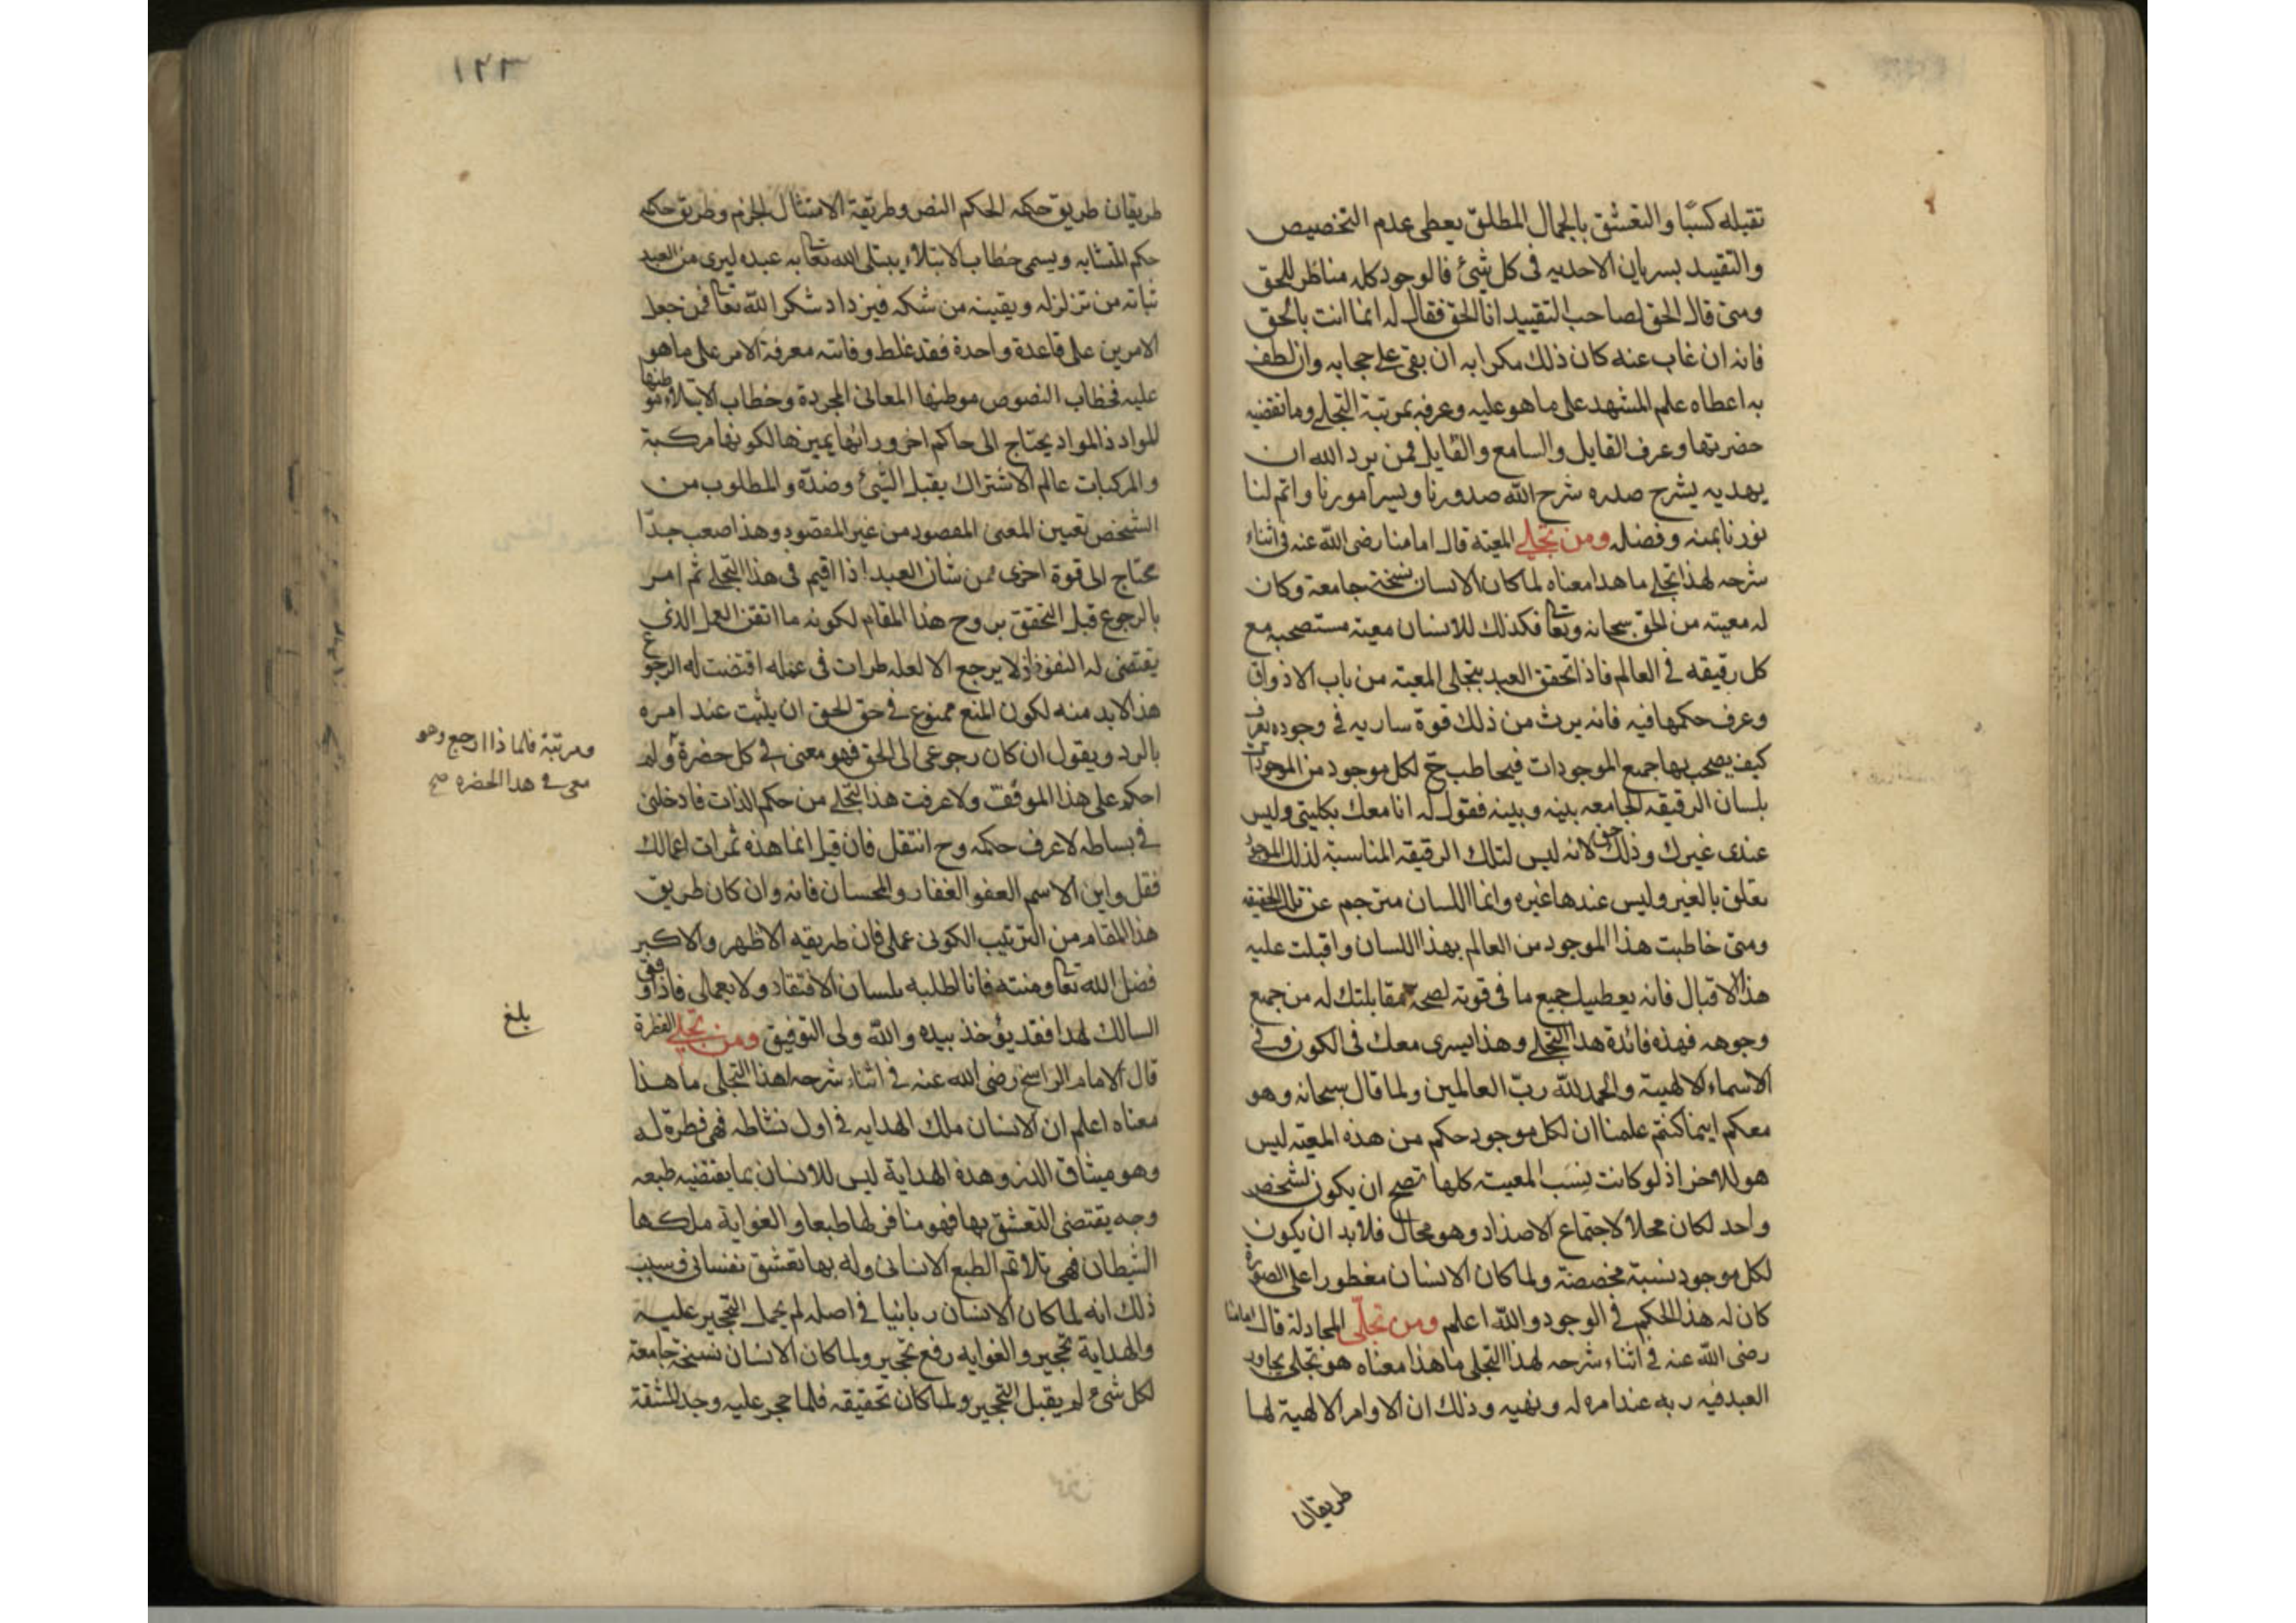 تقبله كسبًا والتعشق بالجمال المطلق يعطى عدم التخصيص
والتقييد بسريان الاحديه فى كل شيئ فالوجود كله مناظر للحق
ومتى قال الحق لصاحب التقييد انا الحق فقال له انما انت بالحق
فانه ان غاب عنه كان ذلك مكرا به ان بقى على حجابه وان لطف
به اعطاه علم المشهد على ما هو عليه وعرفه بمرتبة التجلى وما تقتضيه
حضرتها وعرف القايل والسامع والقايل فمن يرد الله ان
يهديه يشرح صدره شرح الله صدورنا ويسر امورنا واتم لنا
نورنا بمنه وفضله ومن تجلى المعية قال امامنا رضى الله عنه فى اثناء
شرحه لهذا تجلى ما هذا معناه لما كان الانسان نسخة جامعة وكان
له معية من الحق سبحانه وتعا فكذلك للانسان معية مستصحبه مع
كل رقيقه فى العالم فاذا تحقق العبد بتجلى المعية من باب الاذواق
وعرف حكمها فيه فانه يرث من ذلك قوة ساريه فى وجوده يعرف
كيف يصحب بها جميع الموجودات فيخاطب ح لكل موجود من الموجودات
بلسان الرقيقه الجامعه بينه وبينه فقول له انا معك بكليتى وليس
عندى غيرك وذلك حق لانه ليس لتلك الرقيقه المناسبة لذلك الموجود
تعلق بالغير وليس عندها غيره وانما اللسان مترجم عن تلك الحقيقه
ومتى خاطبت هذا الموجود من العالم بهذا اللسان واقبلت عليه
هذا الاقبال فانه يعطيك جميع ما فى قوته لصحة مقابلتك له من جميع
وجوهه فهذه فائدة هذا التجلى وهذا يسرى معك فى الكون وفى
الاسماء الالهية والحمد لله ربّ العالمين ولما قال سبحانه وهو
معكم اينما كنتم علمنا ان لكل موجود حكم من هذه المعية ليس
هو للاخر اذ لو كانت نِسَب المعيت كلها تصح ان يكون لشخص
واحد لكان محلا لاجتماع الاضداد وهو محال فلابد ان يكون
لكل موجود نسبة مخصصة ولما كان الانسان مفطورا على الصورة
كان له هذا الحكم فى الوجود والله اعلم ومن تجلّى المجادلة قال امامنا
رضى الله عنه فى اثناء شرحه لهذا التجلى ما هذا معناه هو تجلى يحاور
العبد فيه ربه عند امره له ونهيه وذلك ان الاوامر الالهية لها
طريقان
١٢٣
طريقان طريق حكمه الحكم النص وطريقة الامتثال الجزم وطريق حكمه
حكم المتشابه ويسمى خطاب الابتلاء يبتلى الله تعا به عبده ليرى من العبد
ثباته من تزلزله ويقينه من شكه فيزداد شكرا لله تعا فمن جعل
الامرين على قاعدة واحدة فقد غلط وفاتته معرفة الامر على ما هو
عليه فخطاب النصوص موطنها المعانى المجردة وخطاب الابتلاء موطنها
للمواد ذالمواد يحتاج الى حاكم اخر ورائها يميزها لكونها مركبة
والمركبات عالم الاشتراك يقبل الشئ وضدّه والمطلوب من
الشخص تعيين المعنى المقصود من غير المقصود وهذا صعب جدّا
محتاج الى قوة اخرى فمن شان العبد اذا اقيم فى هذا التجلى ثم امر
بالرجوع قبل التحقق بروح هذا المقام لكونه ما اتقن العمل الذى
يقتضى له النفوذ اذ لا يرجع الا لعله طرات فى عمله اقتضت له الرجوع
هذا لابد منه لكون المنع ممنوع فى حق الحق ان يثبت عند امره
بالرد ويقول ان كان رجوعى الى الحق فهو معنى فى كل حضرة ولم
ومرتبة فلماذا ارجع وهو
معى فى هذا الحضره صح
احكم على هذا الموقف ولا عرفت هذا التجلى من حكم الذات فادخلنى
فى بساطه لاعرف حكمه وح انتقل فان قيل انما هذه ثمرات اعمالك
فقل واين الاسم العفو الغفار والمحسان فانه وان كان طريق
هذا المقام من الترتيب الكونى عملى فان طريقه الاظهر والاكبر
فضل الله تعا ومنته فانا اطلبه بلسان الافتقار ولا بعملى فاذا وفق
السالك لهذا فقد يؤخذ بيده والله ولى التوفيق ومن تجلى الفطرة
بلغ
قال الامام الراسخ رضى الله عنه فى اثناء شرحه لهذا التجلى ما هذا
معناه اعلم ان الانسان ملك الهدايه فى اول نشاطه فهى فطرة له
وهو ميثاق الذر وهذه الهداية ليس للانسان بما يقتضيه طبعه
وجه يقتضى التعشق بها فهو منافر لها طبعا والغواية ملكها
الشيطان فهى تلائم الطبع الانسانى وله بها تعشق نفسانى وسبب
ذلك انه لما كان الانسان ربانيا فى اصله لم يحمل التحجير عليه
والهداية تحجير والغوايه رفع تحجير ولما كان الانسان نسخة جامعة
لكل شئ لم يقبل التحجير ولما كان تحقيقه فلما حجر عليه وجد المشقة